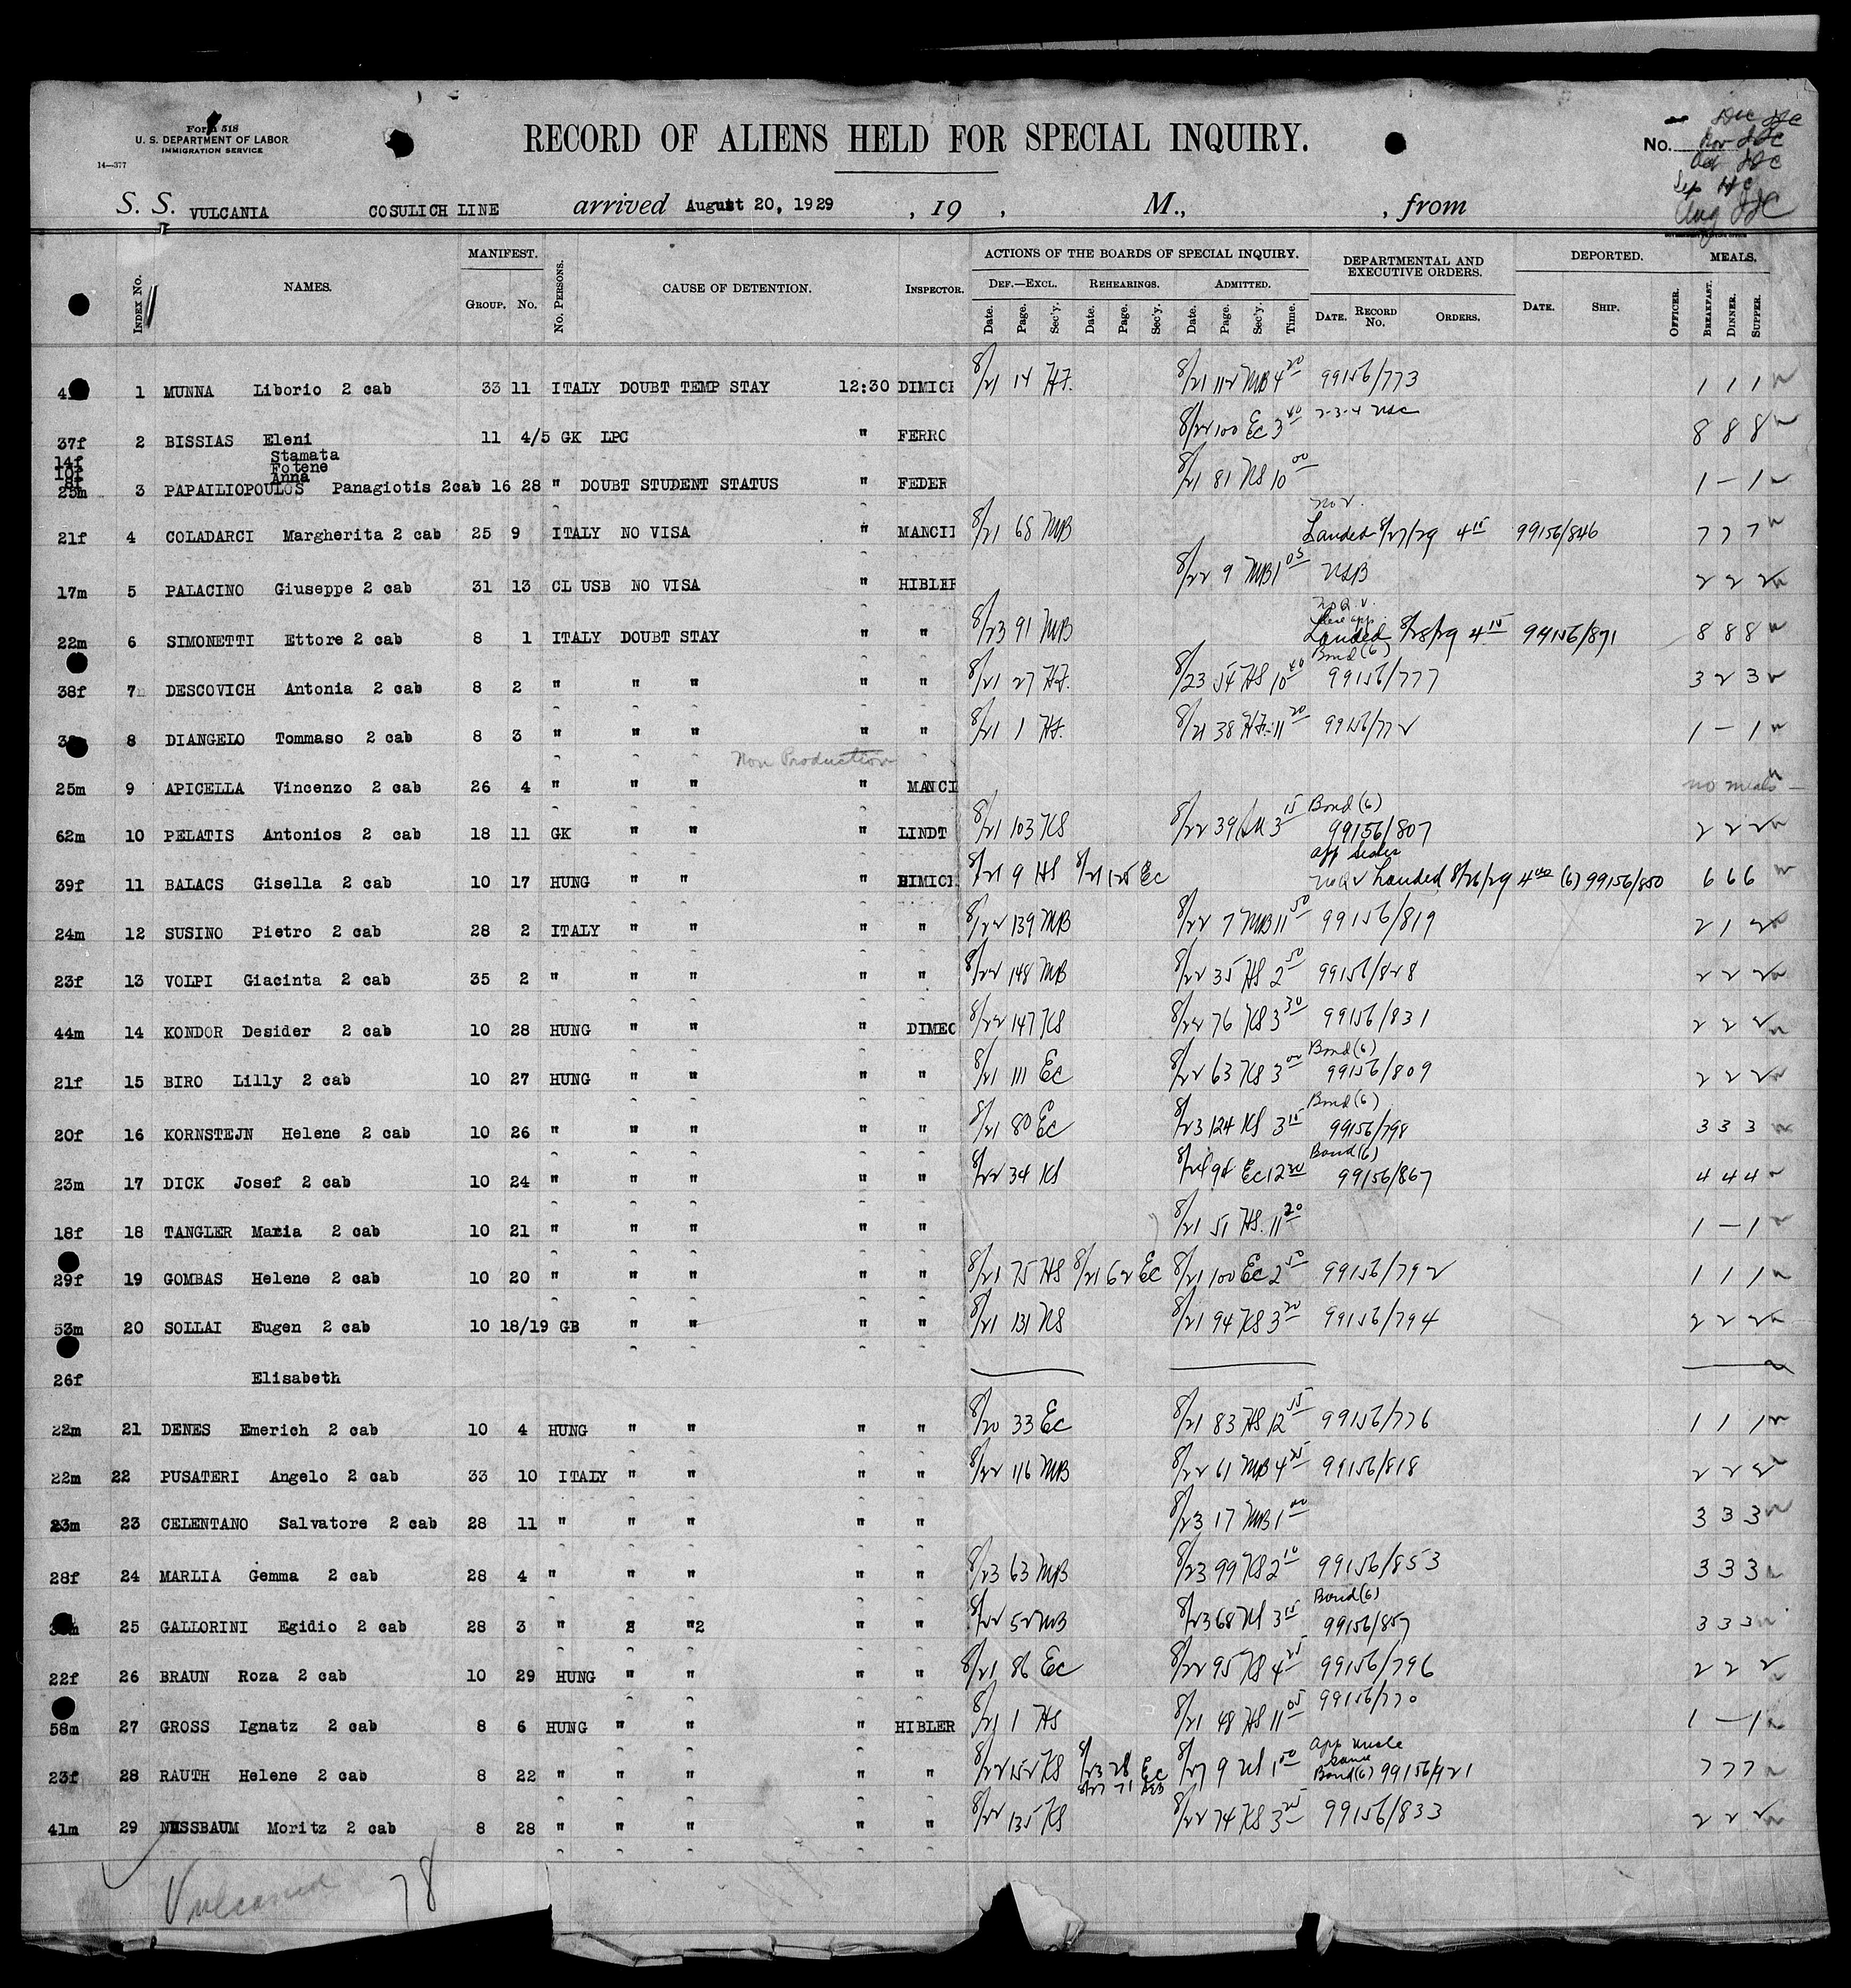 Form 518
U. S. DEPARTMENT OF LABOR
IMMIGRATION SERVICE
14—377
RECORD OF ALIENS HELD FOR SPECIAL INQUIRY.
No.
S. S. VULCANIA COSULICH LINE arrived August 20, 1929 , 19 , M., , from
Index No. NAMES. MANIFEST. Group. No. No. Persons. CAUSE OF DETENTION. Inspector. ACTIONS OF THE BOARDS OF SPECIAL INQUIRY. Def.—Excl. Rehearings. Admitted. DEPARTMENTAL AND EXECUTIVE ORDERS. DEPORTED. MEALS.
Date. Page. Sec'y. Date. Page. Sec'y. Date. Page. Sec'y. Time. Date. Record No. Orders. Date. Ship. Officer. Breakfast. Dinner. Supper.
1 MUNNA Liborio 2 cab 33 11 ITALY DOUBT TEMP STAY 12:30 DIMICI 8/21 14 HF. 8/21 112 MB 4 20 99156/773 1 1 1
37f 2 BISSIAS Eleni 11 4/5 GK LPC " FERRO 8/22 100 EC 3 40 8 8 8
14f Stamata
10f Fotene
8f Anna
25m 3 PAPAILIOPOULOS Panagiotis 2cab 16 28 " DOUBT STUDENT STATUS " FEDER 8/21 81 KS 10 00 1 — 1
21f 4 COLADARCI Margherita 2 cab 25 9 ITALY NO VISA " MANCII 8/21 68 MB Landed 8/27/29 4 15 99156/846 7 7 7
17m 5 PALACINO Giuseppe 2 cab 31 13 CL USB NO VISA " HIBLER 8/22 9 MB 1 05 USB 2 2 2
22m 6 SIMONETTI Ettore 2 cab 8 1 ITALY DOUBT STAY " " 8/23 91 MB Landed 8/28/29 4 15 99156/871 8 8 8
38f 7 DESCOVICH Antonia 2 cab 8 2 " " " " " 8/21 27 HF. 8/23 54 HS 10 40 Bond (6) 99156/777 3 2 3
8 DIANGELO Tommaso 2 cab 8 3 " " " " " 8/21 1 HF. 8/21 38 HF. 11 20 99156/772 1 — 1
Non Production
25m 9 APICELLA Vincenzo 2 cab 26 4 " " " " MANCI no meals
62m 10 PELATIS Antonios 2 cab 18 11 GK " " " LINDT 8/21 103 KS 8/22 39 3 15 Bond (6) 99156/807 2 2 2
39f 11 BALACS Gisella 2 cab 10 17 HUNG " " " DIMICI 8/21 9 HS 8/21 125 EC Landed 8/26/29 4 00 (6) 99156/850 6 6 6
24m 12 SUSINO Pietro 2 cab 28 2 ITALY " " " " 8/22 139 MB 8/22 7 MB 11 50 99156/819 2 1 2
23f 13 VOLPI Giacinta 2 cab 35 2 " " " " " 8/22 148 MB 8/22 35 HS 2 50 99156/828 2 2 2
44m 14 KONDOR Desider 2 cab 10 28 HUNG " " " DIMEC 8/22 147 KS 8/22 76 KS 3 30 99156/831 2 2 2
21f 15 BIRO Lilly 2 cab 10 27 HUNG " " " " 8/21 111 EC 8/22 63 KS 3 00 Bond (6) 99156/809 2 2 2
20f 16 KORNSTEJN Helene 2 cab 10 26 " " " " " 8/21 80 EC 8/23 124 KS 3 15 Bond (6) 99156/798 3 3 3
23m 17 DICK Josef 2 cab 10 24 " " " " " 8/22 34 KS EC 12 30 Bond (6) 99156/867 4 4 4
18f 18 TANGLER Maria 2 cab 10 21 " " " " " 8/21 51 HS. 11 20 1 — 1
29f 19 GOMBAS Helene 2 cab 10 20 " " " " " 8/21 75 HS 8/21 62 EC 8/21 100 EC 2 50 99156/792 1 1 1
53m 20 SOLLAI Eugen 2 cab 10 18/19 GB " " " " 8/21 131 KS 8/21 94 KS 3 20 99156/794 2 2 2
26f Elisabeth
22m 21 DENES Emerich 2 cab 10 4 HUNG " " " " 8/20 33 EC 8/21 83 HS 12 55 99156/776 1 1 1
22m 22 PUSATERI Angelo 2 cab 33 10 ITALY " " " " 8/22 116 MB 8/22 61 MB 4 25 99156/818 2 2 2
23m 23 CELENTANO Salvatore 2 cab 28 11 " " " " " 8/23 17 MB 1 00 3 3 3
28f 24 MARLIA Gemma 2 cab 28 4 " " " " " 8/23 63 MB 8/23 99 KS 2 10 99156/853 3 3 3
25 GALLORINI Egidio 2 cab 28 3 " " " " " 8/22 52 MB 8/23 68 3 15 Bond (6) 99156/857 3 3 3
22f 26 BRAUN Roza 2 cab 10 29 HUNG " " " " 8/21 86 EC 8/22 95 KS 4 25 99156/796 2 2 2
58m 27 GROSS Ignatz 2 cab 8 6 HUNG " " " HIBLER 8/21 1 HS 8/21 48 HS 11 05 99156/770 1 — 1
23f 28 RAUTH Helene 2 cab 8 22 " " " " " 8/22 152 KS 8/23 28 EC 8/27 9 1 50 Bond (6) 99156/921 7 7 7
8/27 71
41m 29 NUSSBAUM Moritz 2 cab 8 28 " " " " " 8/22 135 KS 8/22 74 KS 3 25 99156/833 2 2 2
Vulcania 78